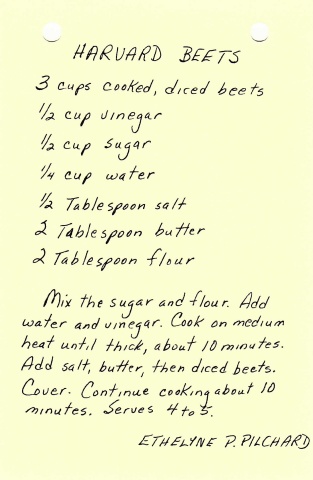 HARVARD BEETS
3 cups cooked, diced beets
1/2 cup vinegar
1/2 cup sugar
1/4 cup water
1/2 Tablespoon salt
2 Tablespoon butter
2 Tablespoon flour
Mix the sugar and flour. Add
water and vinegar. Cook on medium
heat until thick, about 10 minutes.
Add salt, butter, then diced beets.
Cover. Continue cooking about 10
minutes. Serves 4 to 5.
ETHELYNE P. PILCHARD